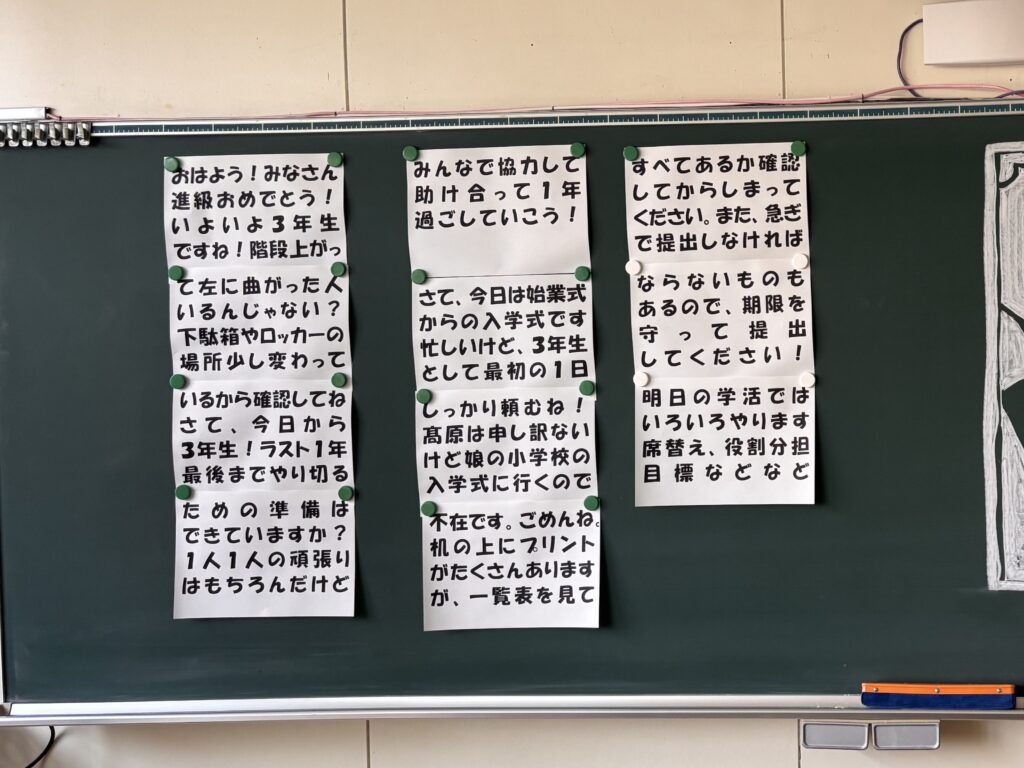 おはよう！みなさん
進級おめでとう！
いよいよ３年生
ですね！階段上がっ
て左に曲がった人
いるんじゃない？
下駄箱やロッカーの
場所少し変わって
いるから確認してね
さて、今日から
３年生！ラスト１年
最後までやり切る
ための準備は
できていますか？
１人１人の頑張り
はもちろんだけど
みんなで協力して
助け合って１年
過ごしていこう！
さて、今日は始業式
からの入学式です
忙しいけど、３年生
として最初の１日
しっかり頼むね！
髙原は申し訳ない
けど娘の小学校の
入学式に行くので
不在です。ごめんね。
机の上にプリント
がたくさんあります
が、一覧表を見て
すべてあるか確認
してからしまって
ください。また、急ぎ
で提出しなければ
ならないものも
あるので、期限を
守って提出
してください！
明日の学活では
いろいろやります
席替え、役割分担
目標などなど